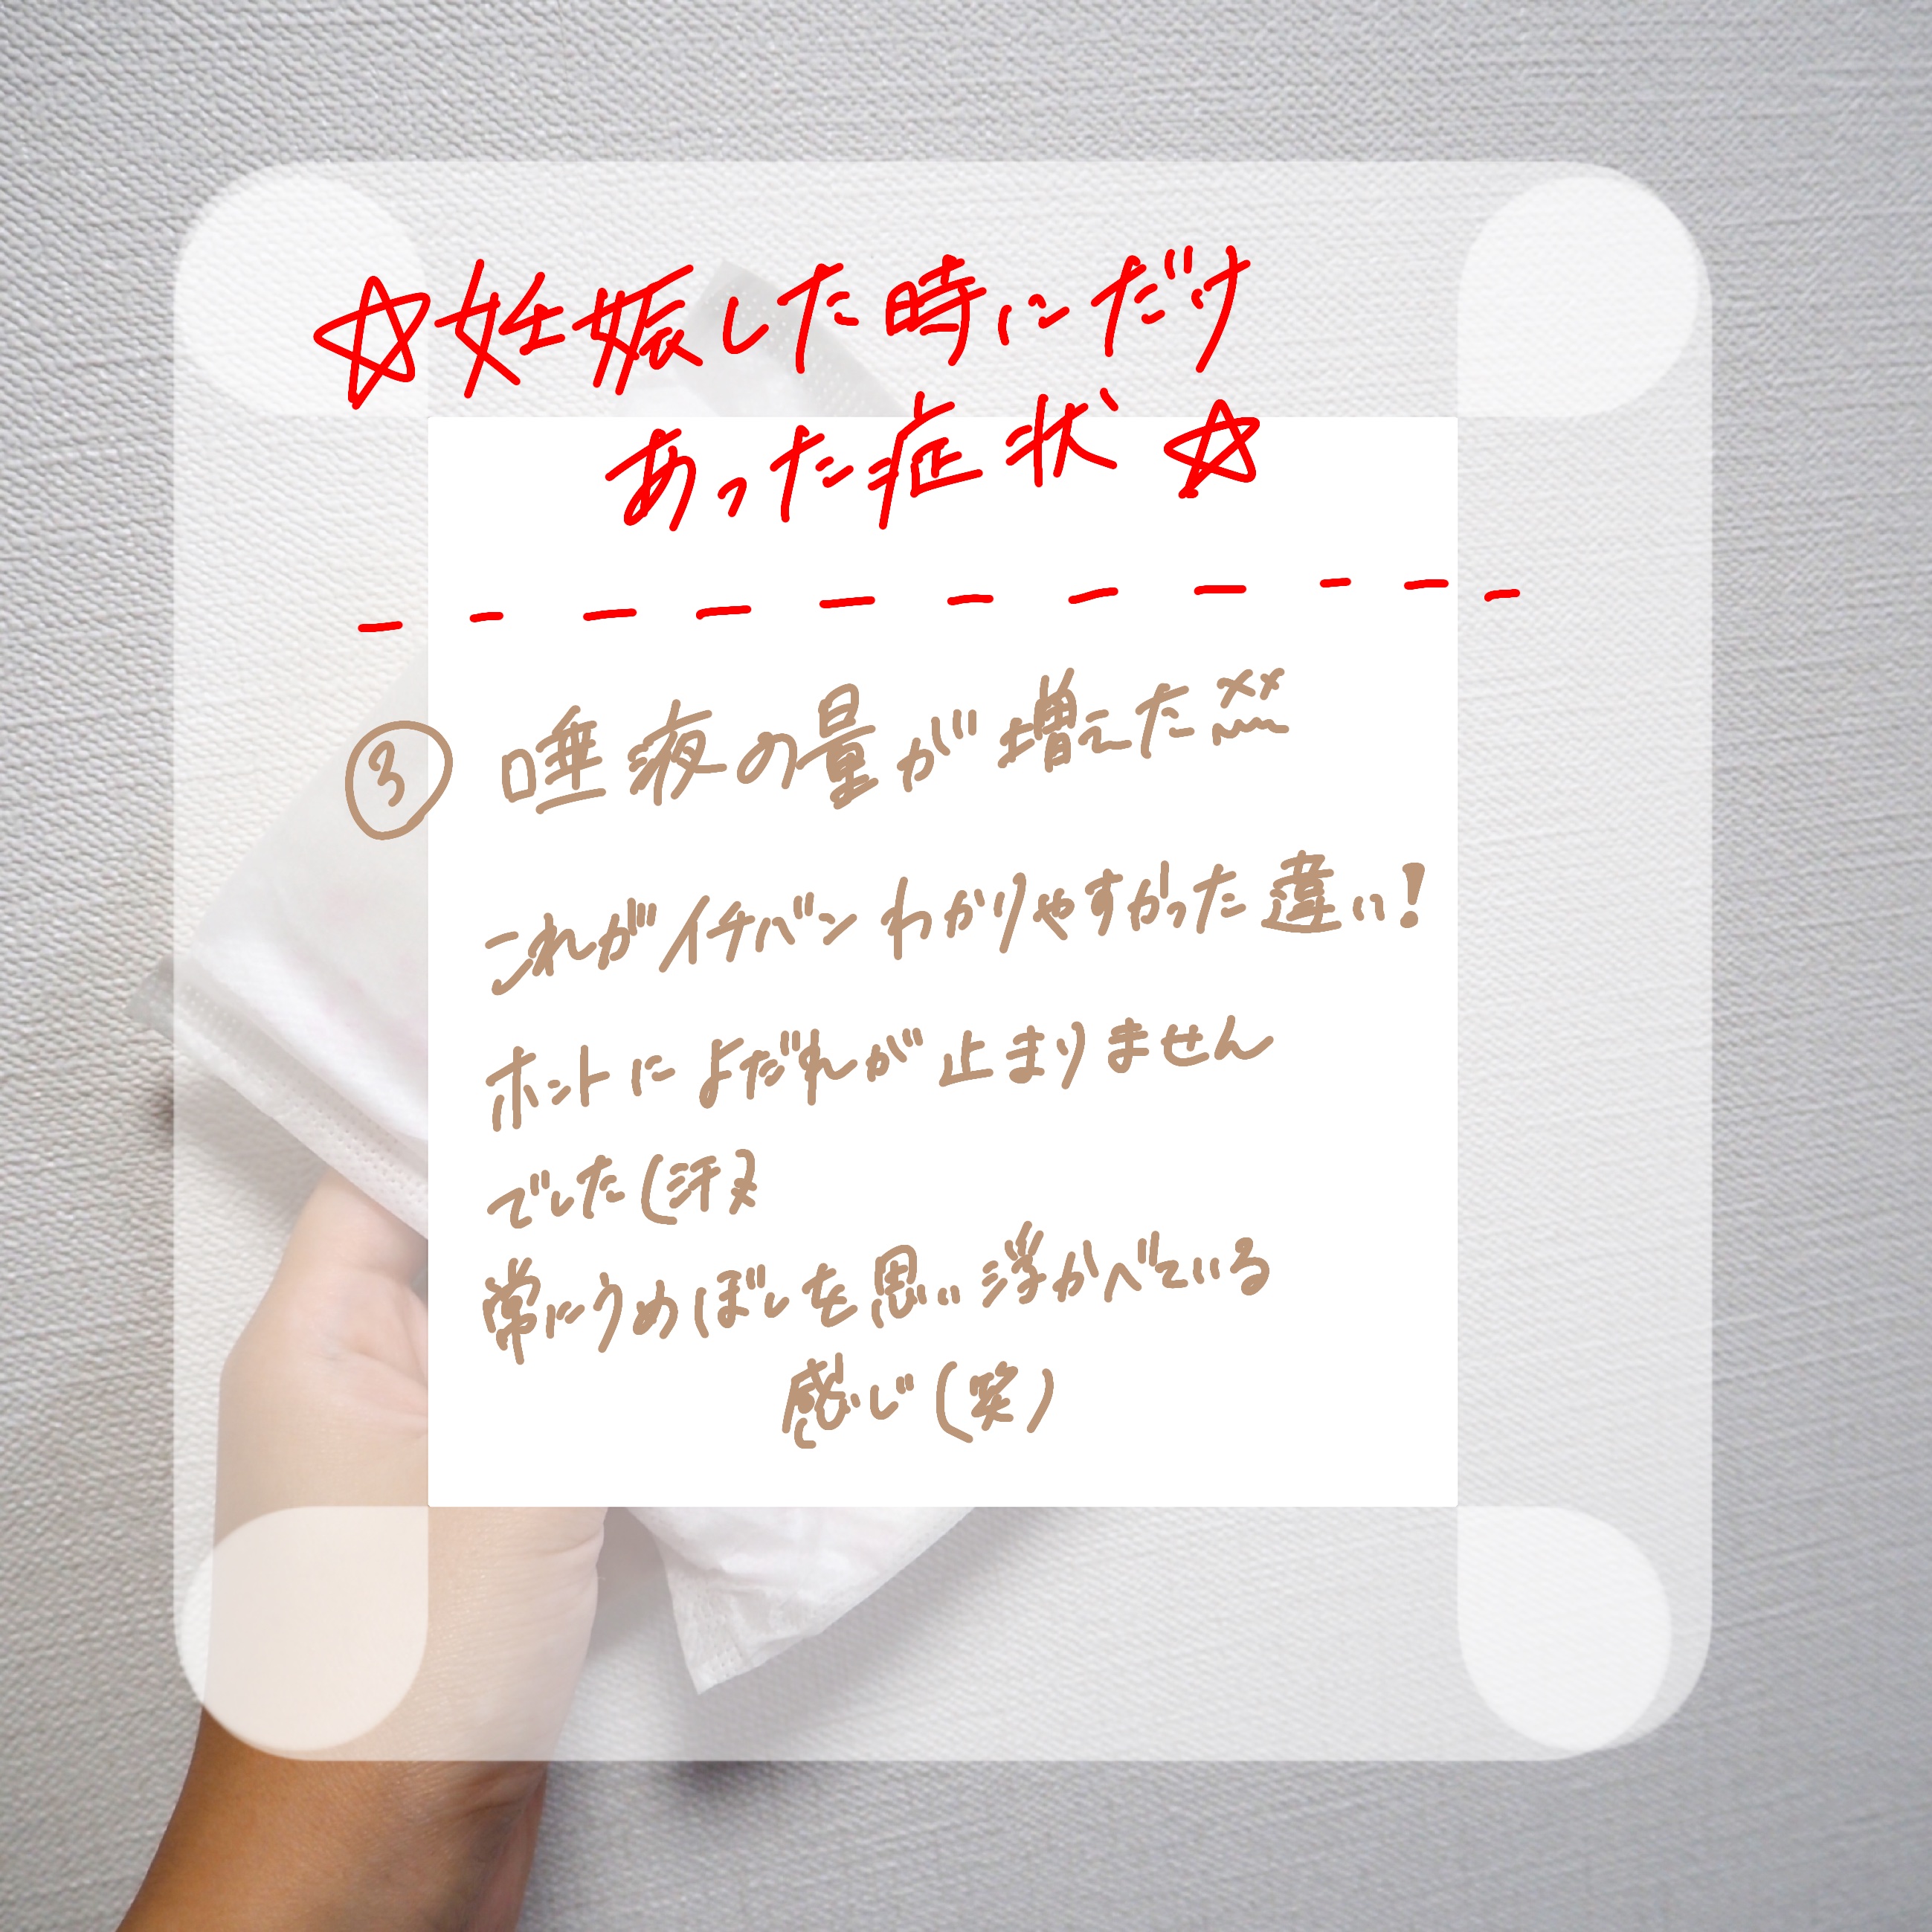 ☆妊娠した時にだけ
あった症状☆
③ 唾液の量が増えた
これがイチバンわかりやすかった違い!
ホントによだれが止まりません
でした(汗)
常にうめぼしを思い浮かべている
感じ(笑)